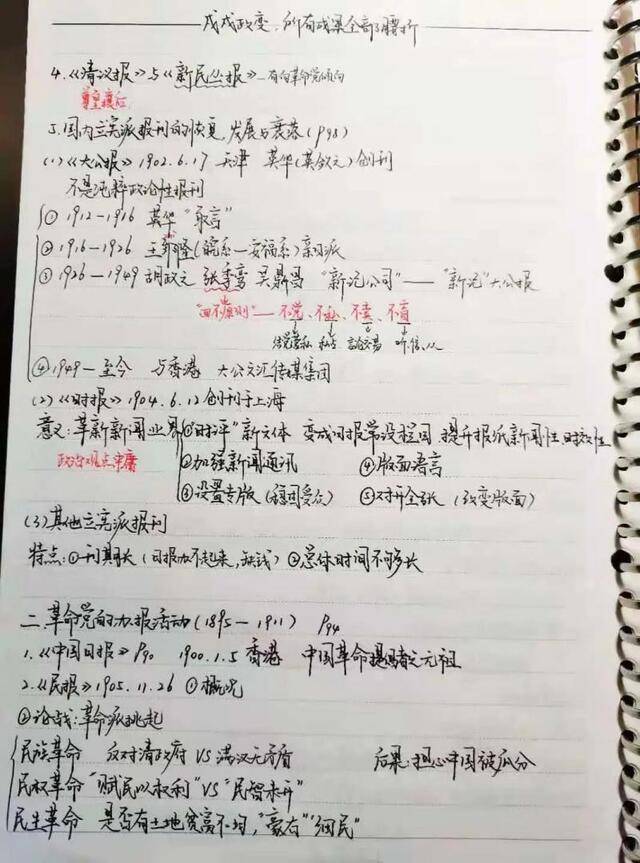 戊戌政变,所有成果全部腰折
4.《清议报》与《新民丛报》—有向革命党倾向
尊皇攘后
5.国内立宪派报刊的恢复,发展与衰落(P98)
(1)《大公报》1902.6.17 天津 英华(英敛之)创刊
不是纯粹政论性报刊
①1912—1916 英华“敢言”
②1916—1926 王郅隆(皖系—安福系)亲日派
③1926—1949 胡政之 张季鸾 吴鼎昌 “新记公司”——“新记”大公报
“四不原则”—不党、不私、不卖、不盲
结党营私 私占 言论交易 听、信、从
④1949—至今 与香港 大公文汇传媒集团
(2)《时报》1904.6.12创刊于上海
意义:革新新闻业界①“时评”新文体 变成日报常设栏目 提升报纸新闻性时效性
政治观点中庸 ②加强新闻通讯 ④版面语言
③设置专版(稳固受众) ⑤对开全张(改变版面)
(3)其他立宪派报刊
特点:①刊期长(日报办不起来,缺钱)②总体时间不够长
二.革命党的办报活动(1895—1911) P94
1.《中国日报》P90 1900.1.5 香港 中国革命提倡者之元祖
2.《民报》1905.11.26 ①概况
②论战:革命派挑起
民族革命 反对清政府 VS 满汉无矛盾 后果:担心中国被瓜分
民权革命“赋民以权利”VS“民智未开”
民生革命 是否有土地贫富不均,“豪右”“细民”